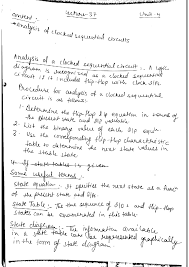 Lecture-37 Unit-4
Content:-
Analysis of clocked sequential circuits
Analysis of a clocked sequential circuit. A logic
diagram is recognized as a clocked sequential
circuit if it includes flip-flop with clock i/ps.
Procedure for analysis of a clocked sequential
circuit is as follows:
1. Determine the flip-flop i/p equation in terms of
the present state and i/p variable.
2. List the binary value of each i/p eqn.
3. Use the corresponding flip-flop characteristic
table to determine the next state values in
the state table.
of state tables is given
Some useful terms:-
state equation:- It specifies the next state as a func
of the present state and i/p.
state Table:- The time sequence of i/p, o/p and flip-flop
states can be enumerated in this table.
State diagram:- The information available
in a state table can be represented graphically
in the form of state diagram